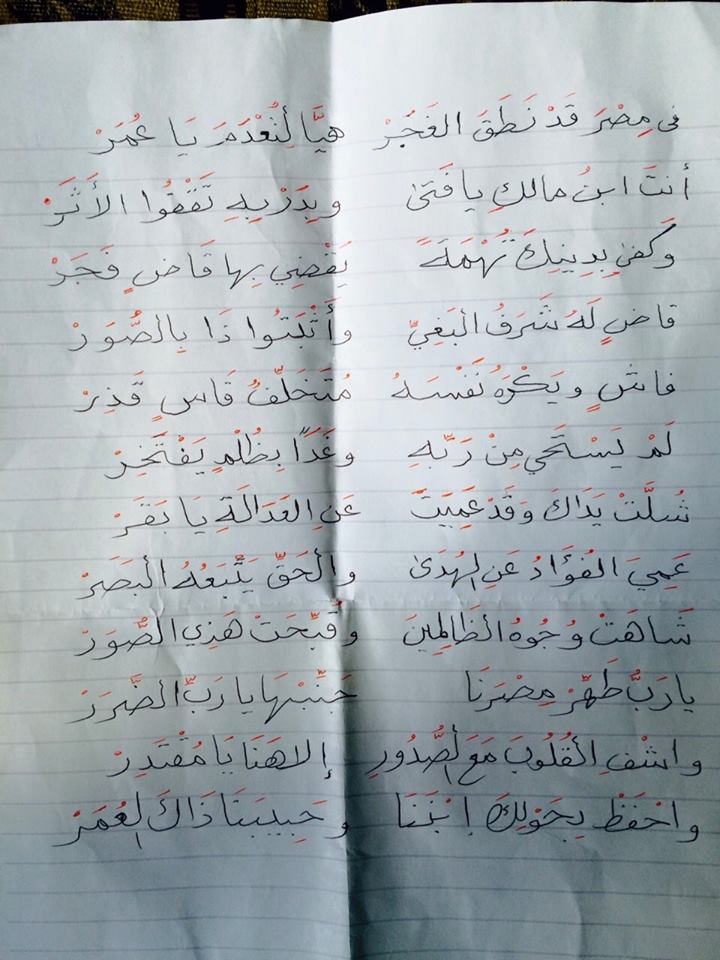 فى مِصْرَ قَدْ نَطَقَ الغَجَرْ هيَّا لِنُعْدَمَ يَا عُمَرْ
أنتَ ابنُ مالكِ يا فَتَىٰ وبِدَرْبِهِ تَقْفُوا الأَثَرْ
وَكَفىٰ بِدِينِكَ تُهْمَةً يَقْضِي بِها قَاضٍ فَجَرْ
قاضٍ لَهُ شَرَفُ الْبَغِيِّ وَأَثْبَتُوا ذَا بِالصُّوَرْ
فاشٍ ويَكْرَهُ نَفْسَهُ مُتَخَلِّفٌ قَاسٍ قَذِرْ
لَمْ يَسْتَحَي مِنْ رَبِّهِ وَغَدًا بِظُلْمٍ يَفْتَخِرْ
شُلَّتْ يَدَاكَ وَقَدْ عَمِيَتْ عَنِ العَدَالَةِ يَا بَقَرْ
عَمِيَ الفُؤَادُ عَنِ الهُدَىٰ والْحَقّ يَتْبَعُهُ الْبَصَرْ
شَاهَتْ وُجُوهُ الظَّالِمِينَ وَقُبِّحَتْ هَذِي الصُّوَرْ
يارَبُّ طَهِّرْ مِصْرَنَا جَنِّبْهَا يارَبّ الضَّرَرْ
واشْفِ الْقُلُوبَ مَعَ الصُّدُورِ إلاهَنَا يَا مُقْتَدِرْ
واحْفَظْ بِحَوْلِكَ إبْنَنَا وحَبِيبَنَا ذَاكَ العُمَرْ